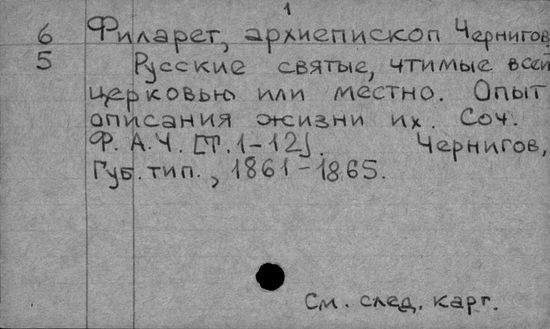 1
6 Филарет, архиепископ Чернигов
5 Русские святые, чтимые всей
церковью или местно. Опыт
описания жизни их. Соч.
Ф. А. Ч. [Т. 1-12]. Чернигов,
Губ. тип., 1861-1865.
См. след. карт.